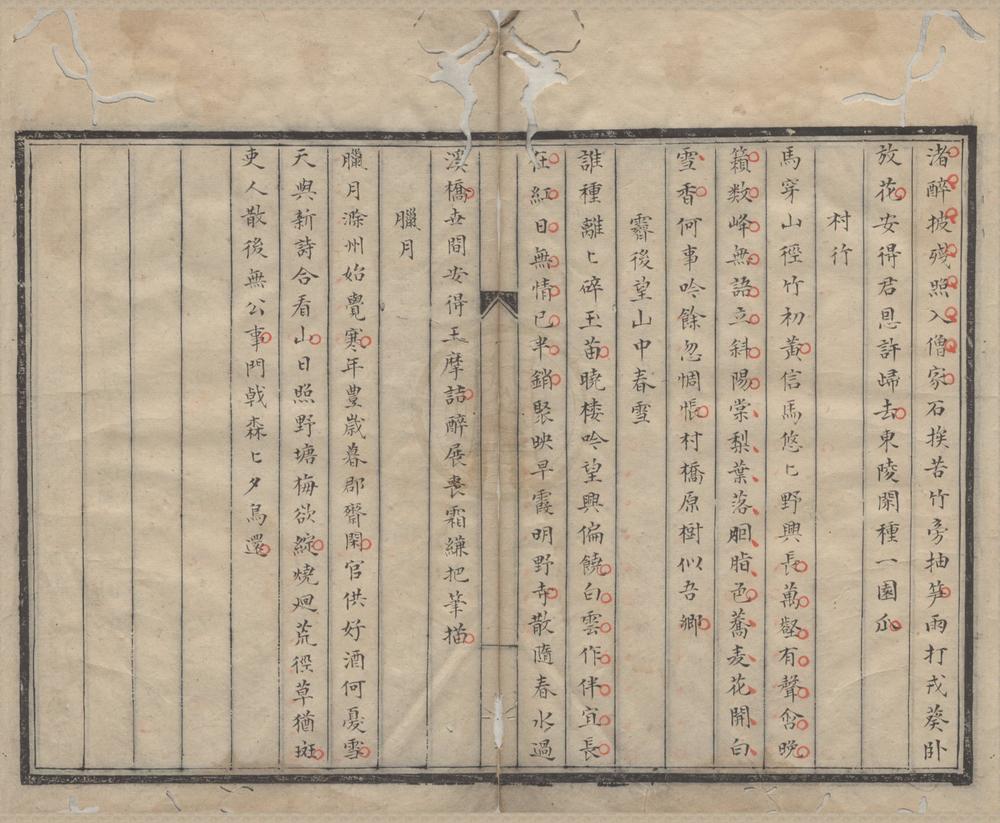 渚醉披殘照入僧家石挨苦竹旁抽笋雨打戎葵卧
放花安得君恩許歸去東陵閑種一園瓜
村行
馬穿山徑竹初黃信馬悠〻野興長萬壑有聲含晚
籟数峰無語立斜陽棠梨葉落胭脂色蕎麦花開白
雪香何事吟餘忽惆悵村橋原樹似吾鄉
霽後望山中春雪
誰種離〻碎玉苗曉樓吟望興偏饒白雲作伴宜長
在紅日無情已半銷聚映早霞明野寺散隨春水過
溪橋世間安得王摩詰醉展霜縑把筆描
臘月
臘月滁州始覺寒年豊歲暮郡齋閑官供好酒何憂雪
天與新詩合看山日照野塘梅欲綻燒迴荒徑草猶斑
吏人散後無公事門戟森〻夕鳥還